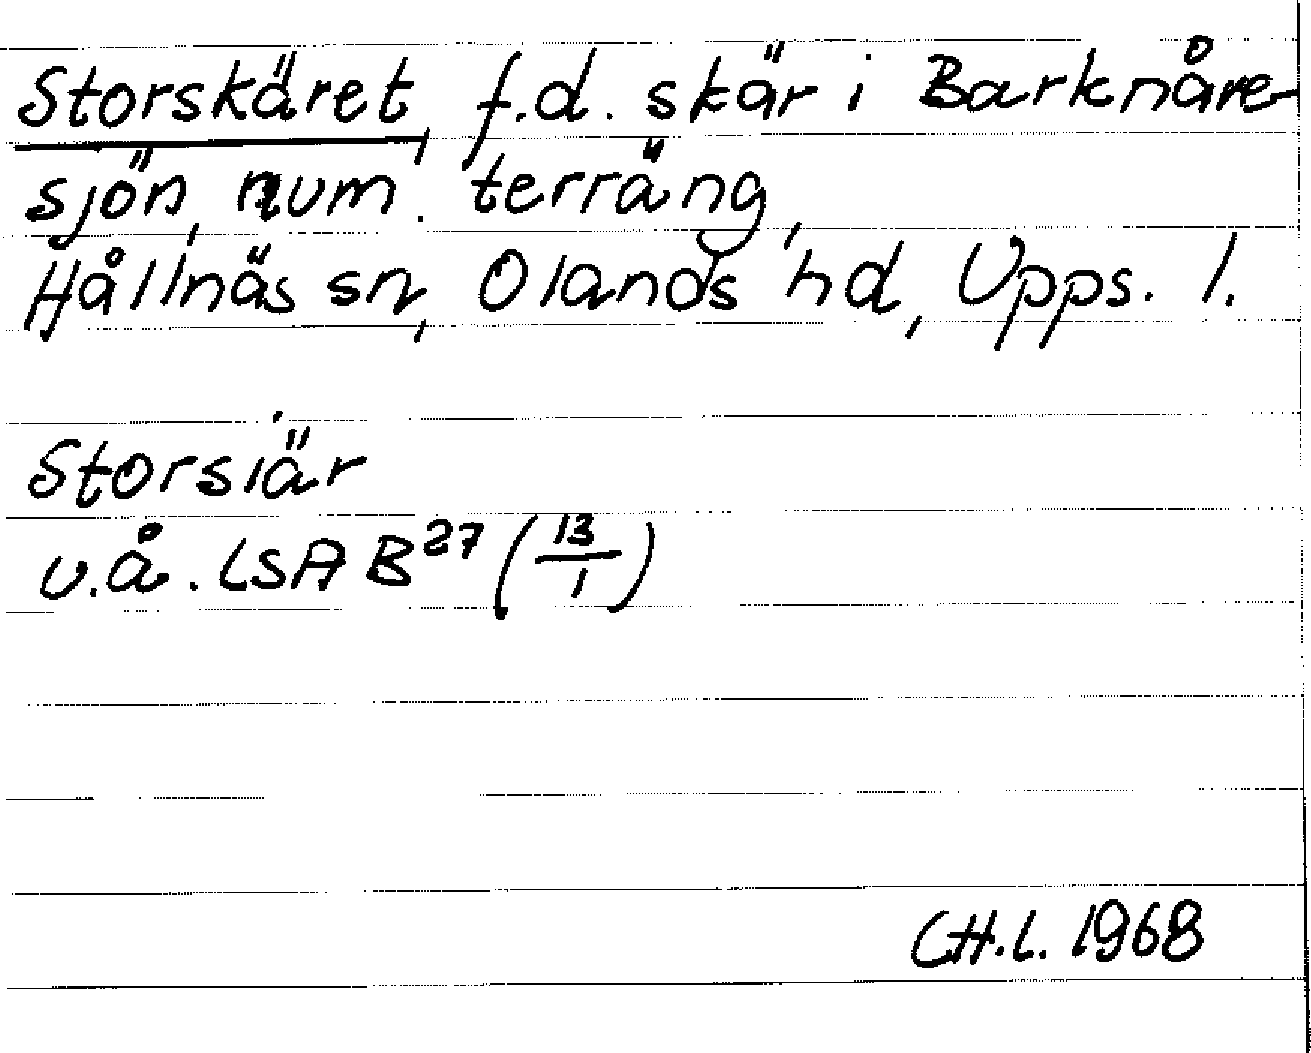 Storskäret, f.d. skär i Barknåre-
sjön, num. terräng,
Hållnäs sn, Olands hd, Upps. l.
Storsiär
u.å. LSA B27 (13/1)
C.H.L. 1968